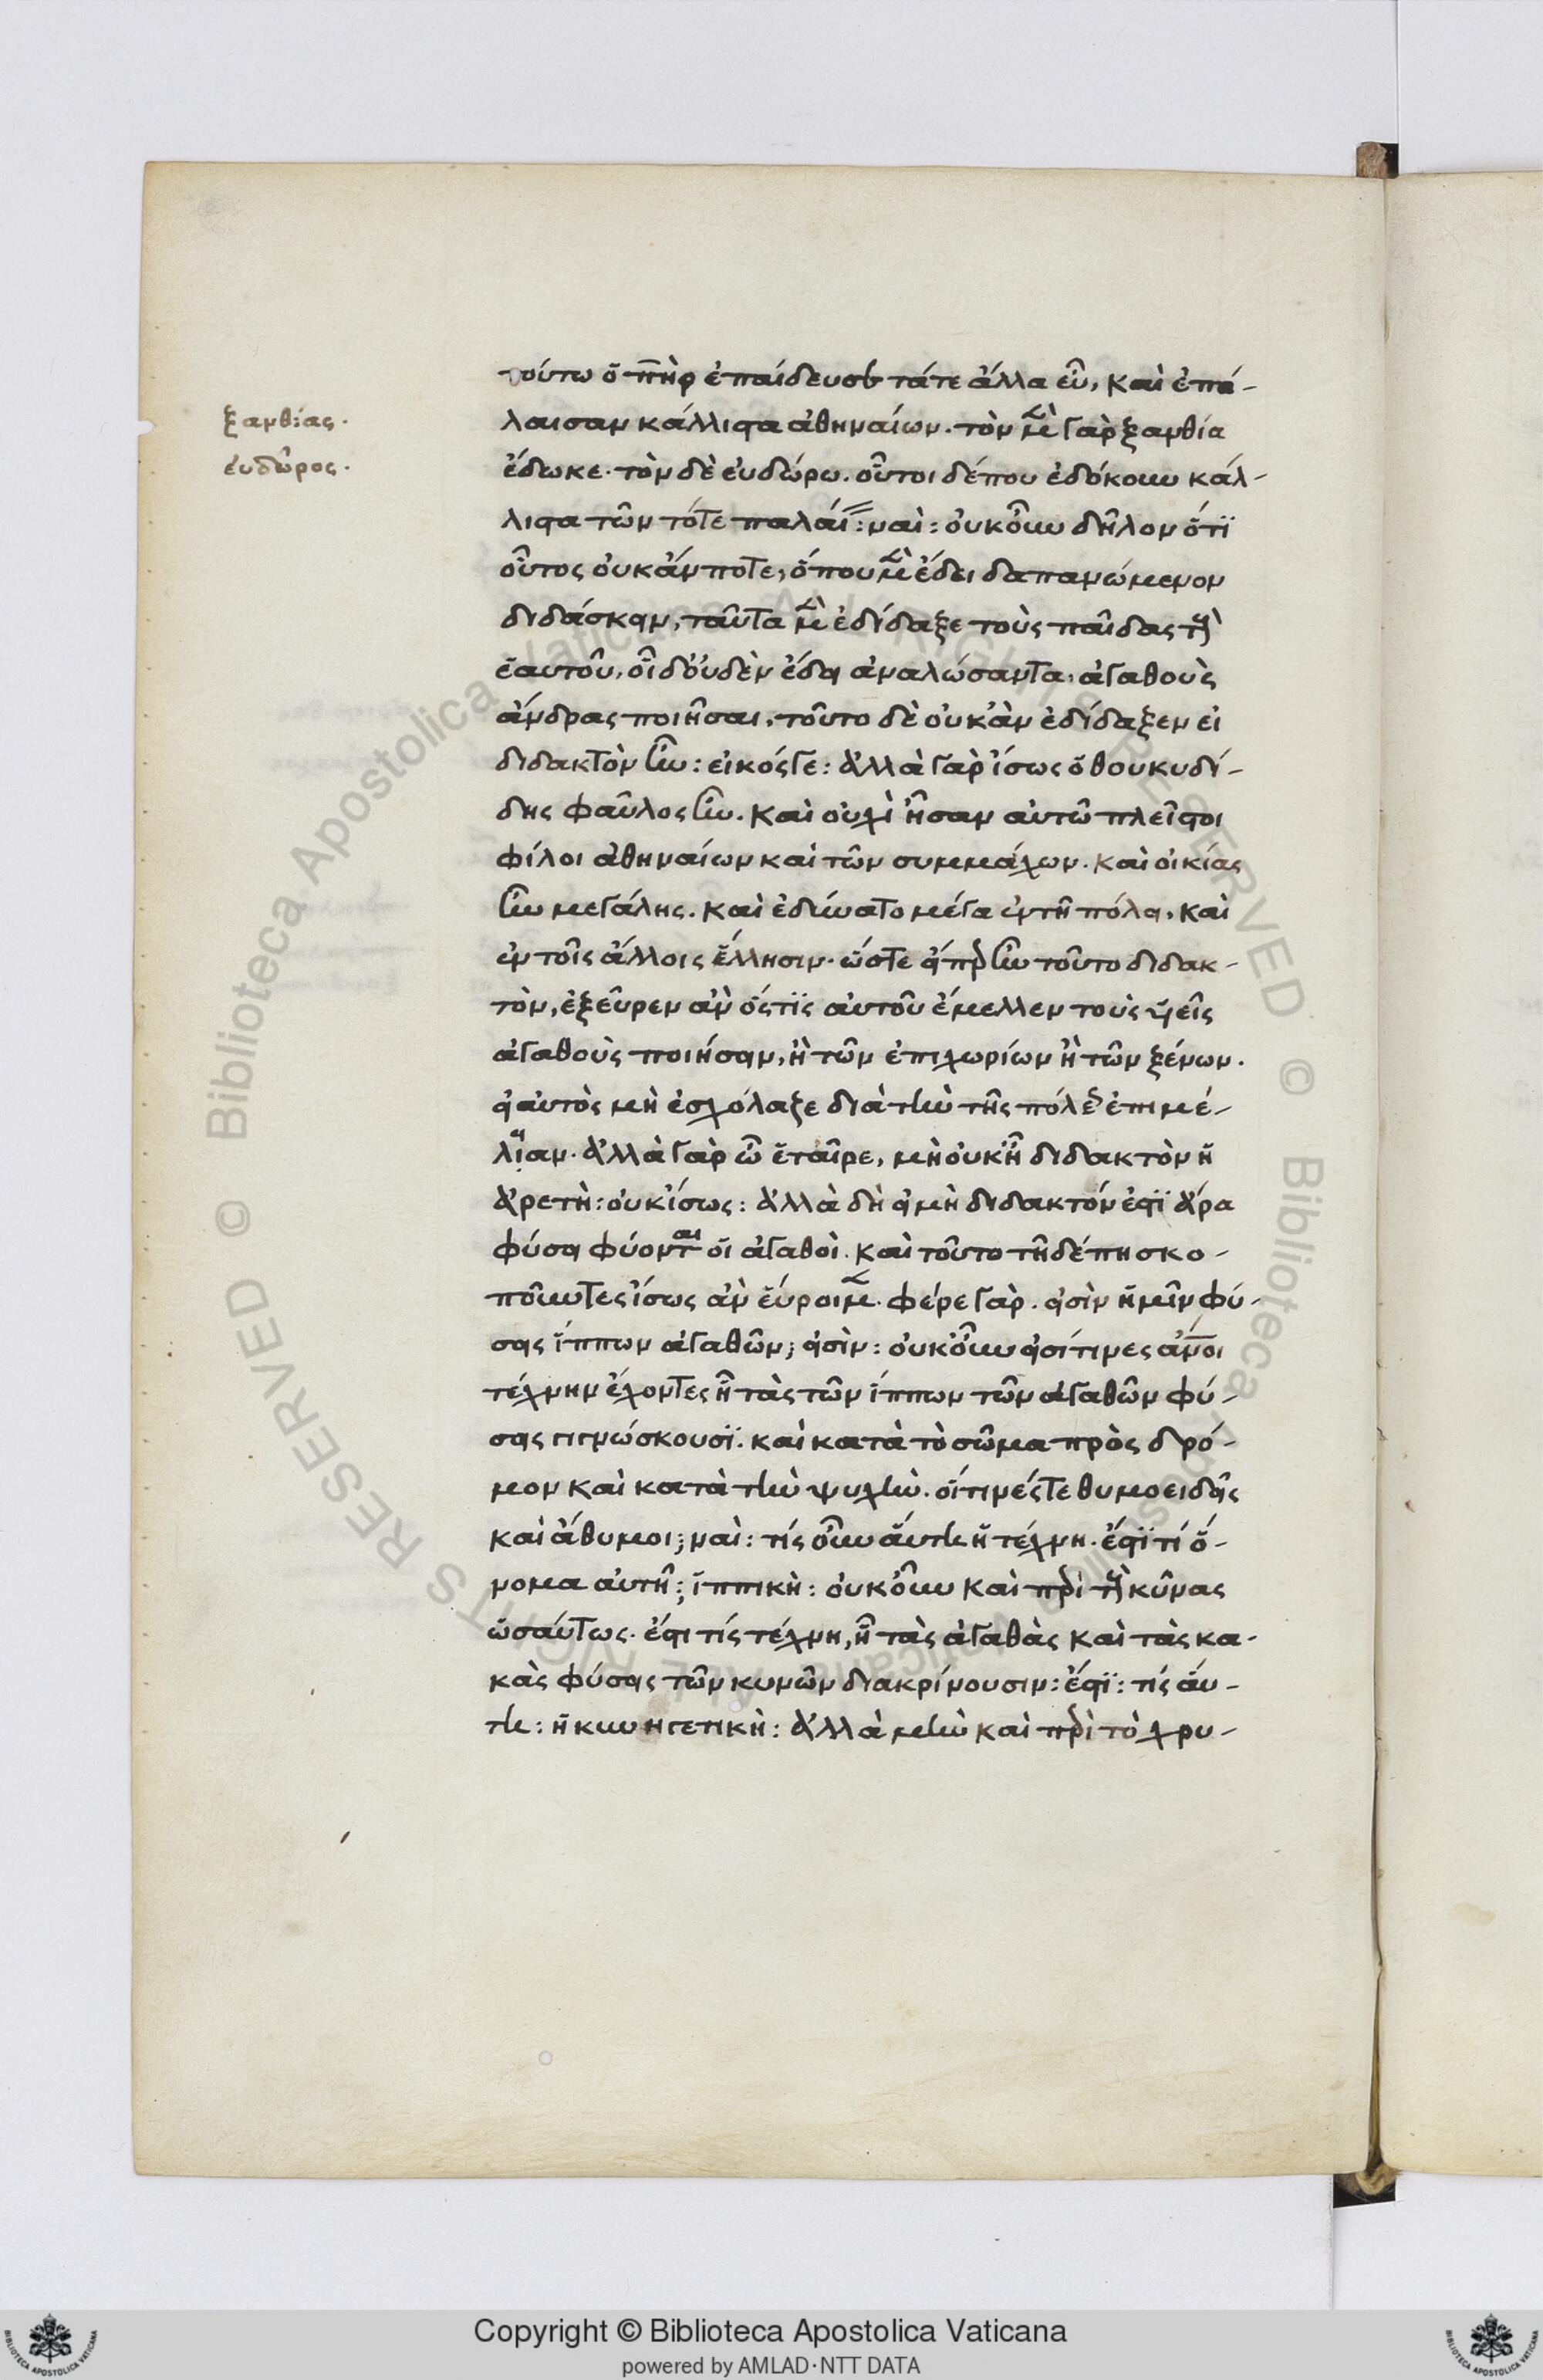 ξανθίας.
εὐδῶρος.
τούτω ὁ πη̅ρ ἐπαίδευσε τάτε ἄλλα εὖ, καὶ ἐπά-
λαισαν κάλλιστα ἀθηναίων. τὸν μὲ̅ γὰρ ξανθία
ἔδωκε. τὸν δὲ εὐδώρω. οὗτοι δέπου ἐδόκουν κάλ-
λιστα τῶν τότε παλαί: ναὶ: οὐκοῦν δῆλον ὅτϊ
οὗτος οὐκἄν ποτε, ὅπου μὲ̅ ἔδει δαπανώμενον
διδάσκειν, ταῦτα μὲ̅ ἐδίδαξε τοὺς παῖδας τοὺς
ἑαυτοῦ, οἷ δ᾽οὐδὲν ἔδει ἀναλώσαντα, ἀγαθοὺς
ἄνδρας ποιῆσαι, τοῦτο δὲ οὐκἂν ἐδίδαξεν εἰ
διδακτὸν ἦν: εἰκόςγε: ἀλλὰ γὰρ ἴσως ὁ θουκυδί-
δης φαῦλος ἦν. καὶ οὐχὶ ἦσαν αὐτῶ πλεῖστοι
φίλοι ἀθηναίων καὶ τῶν συμμάχων. καὶ οἰκίας
ἦν μεγάλης. καὶ ἐδύνατο μέγα ἐν τῆ πόλει, καὶ
ἐν τοῖς ἄλλοις ἕλλησιν. ὥστε εἴπερ ἦν τοῦτο διδακ-
τὸν, ἐξεῦρεν ἂν ὅςτϊς αὐτοῦ ἔμελλεν τοὺς υἱεῖς
ἀγαθοὺς ποιήσειν, ἢ τῶν ἐπιχωρίων ἢ τῶν ξένων.
εἰ αὐτὸς μὴ ἐσχόλαξε διὰ τὴν τῆς πόλεως ἐπιμέ-
λειαν. ἀλλὰ γὰρ ὦ ἑταῖρε, μὴ οὐκ ἦ διδακτὸν ἡ
ἀρετὴ: οὐκ ἴσως: ἀλλὰ δὴ εἰ μὴ διδακτόν ἐστϊ ἄρα
φύσει φύονται οἱ ἀγαθοὶ. καὶ τοῦτο τῆδέπη σκο-
ποῦντες ἴσως ἂν εὕροιμε̅. φέρε γὰρ. εἰσὶν ἡμῖν φύ-
σεις ἵππων ἀγαθῶν; εἰσὶν: οὐκοῦν εἰσί τινες ἄν̅οι
τέχνην ἔχοντες ἧ τὰς τῶν ἵππων τῶν ἀγαθῶν φύ-
σεις γιγνώσκουσϊ. καὶ κατὰ τὸ σῶμα πρὸς δρό-
μον καὶ κατὰ τὴν ψυχὴν. οἵτινές τε θυμοειδεῖς
καὶ ἄθυμοι; ναὶ: τίς οὖν αὕτη ἡ τέχνη. ἔστϊ τί ὄ-
νομα αὐτῆ; ἱππικὴ: οὐκοῦν καὶ περὶ τοὺς κῦνας
ὡσαύτως. ἔστι τίς τέχνη, ἧ τὰς ἀγαθὰς καὶ τὰς κα-
κὰς φύσεις τῶν κυνῶν διακρίνουσιν: ἔστϊ: τίς αὕ-
τη: ἡ κυνηγετικὴ: ἀλλὰ μὴν καὶ περὶ τὸ χρυ-
Copyright © Biblioteca Apostolica Vaticana
powered by AMLAD·NTT DATA